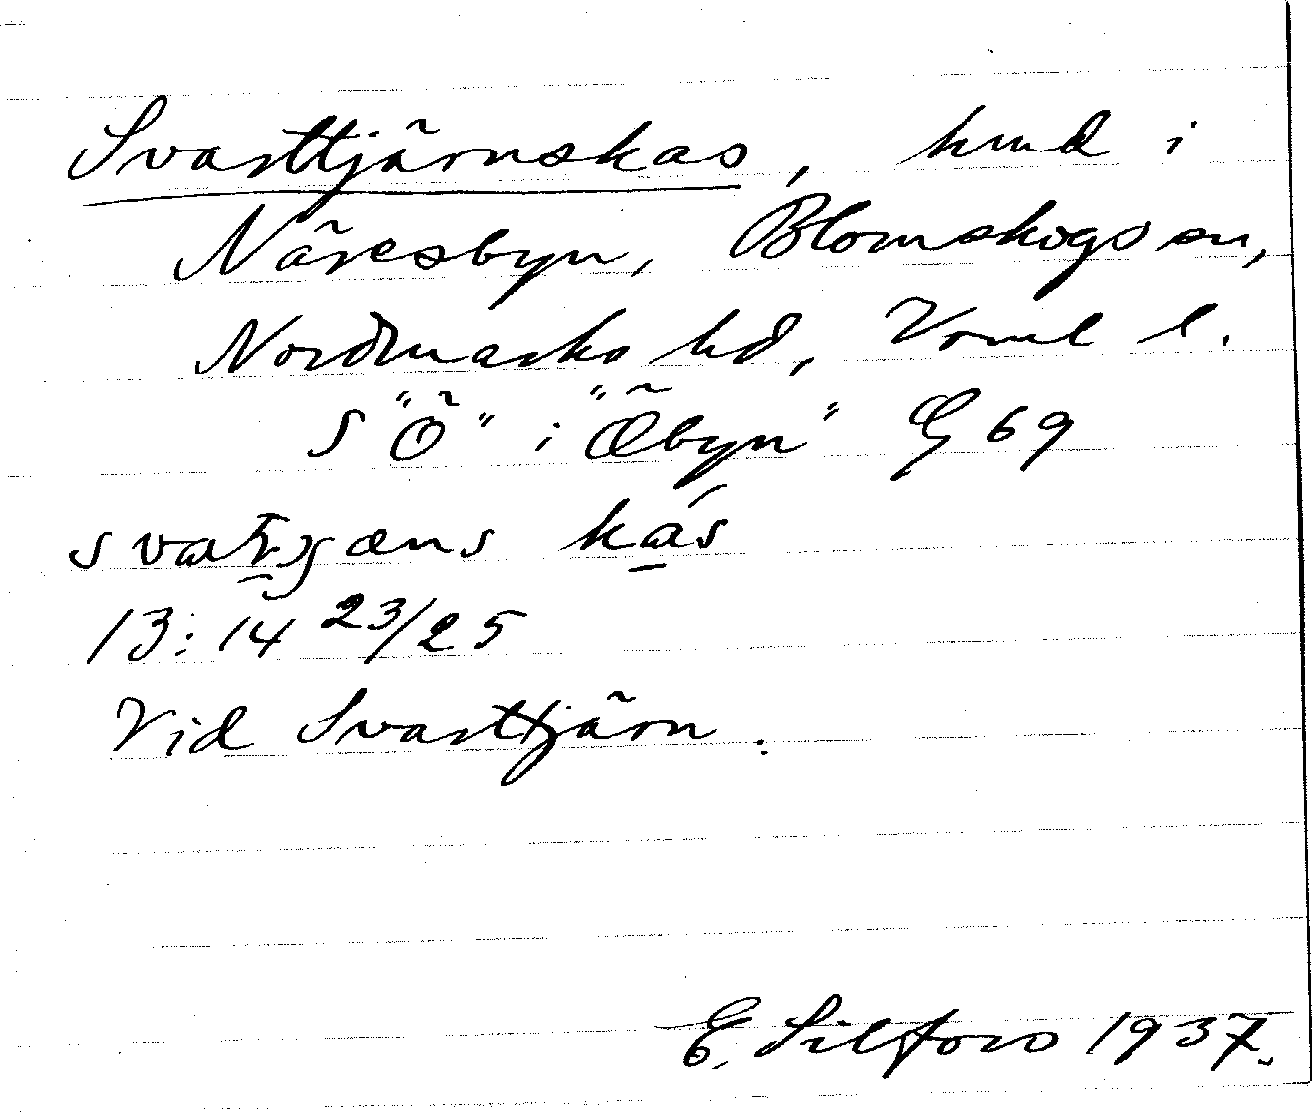 Svarttjärnskas, hmd i
Näresbyn, Blomskogs sn,
Nordmarks hd, Vrml l.
S "Ö" i "Öbyn" G 69
13:14 23/25
Vid Svarttjärn.
E. Silfors 1937.